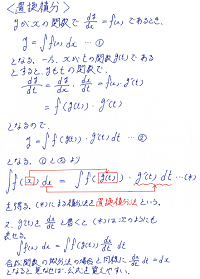 <置換積分>
yがxの関数で dy/dx = f(x) であるとき、
y = ∫f(x) dx … ①
となる。一方、xがtの関数g(t)である
とすると、yもtの関数で、
dy/dt = dy/dx · dx/dt = f(x) · g'(t)
= f(g(t)) · g'(t)
となるので
y = ∫f(g(t)) · g'(t) dt … ②
となる。①と②より
∫f(x) dx = ∫f(g(t)) · g'(t) dt …(*)
を得る。(*)による積分法を置換積分という。
又、g'(t)を dx/dt と書くと(*)は次のようにも
書ける。
∫f(x) dx = ∫f(g(t)) dx/dt dt
合成関数の微分法の場合と同様に dx/dt dt = dx
となると見れば、公式を覚えやすい。